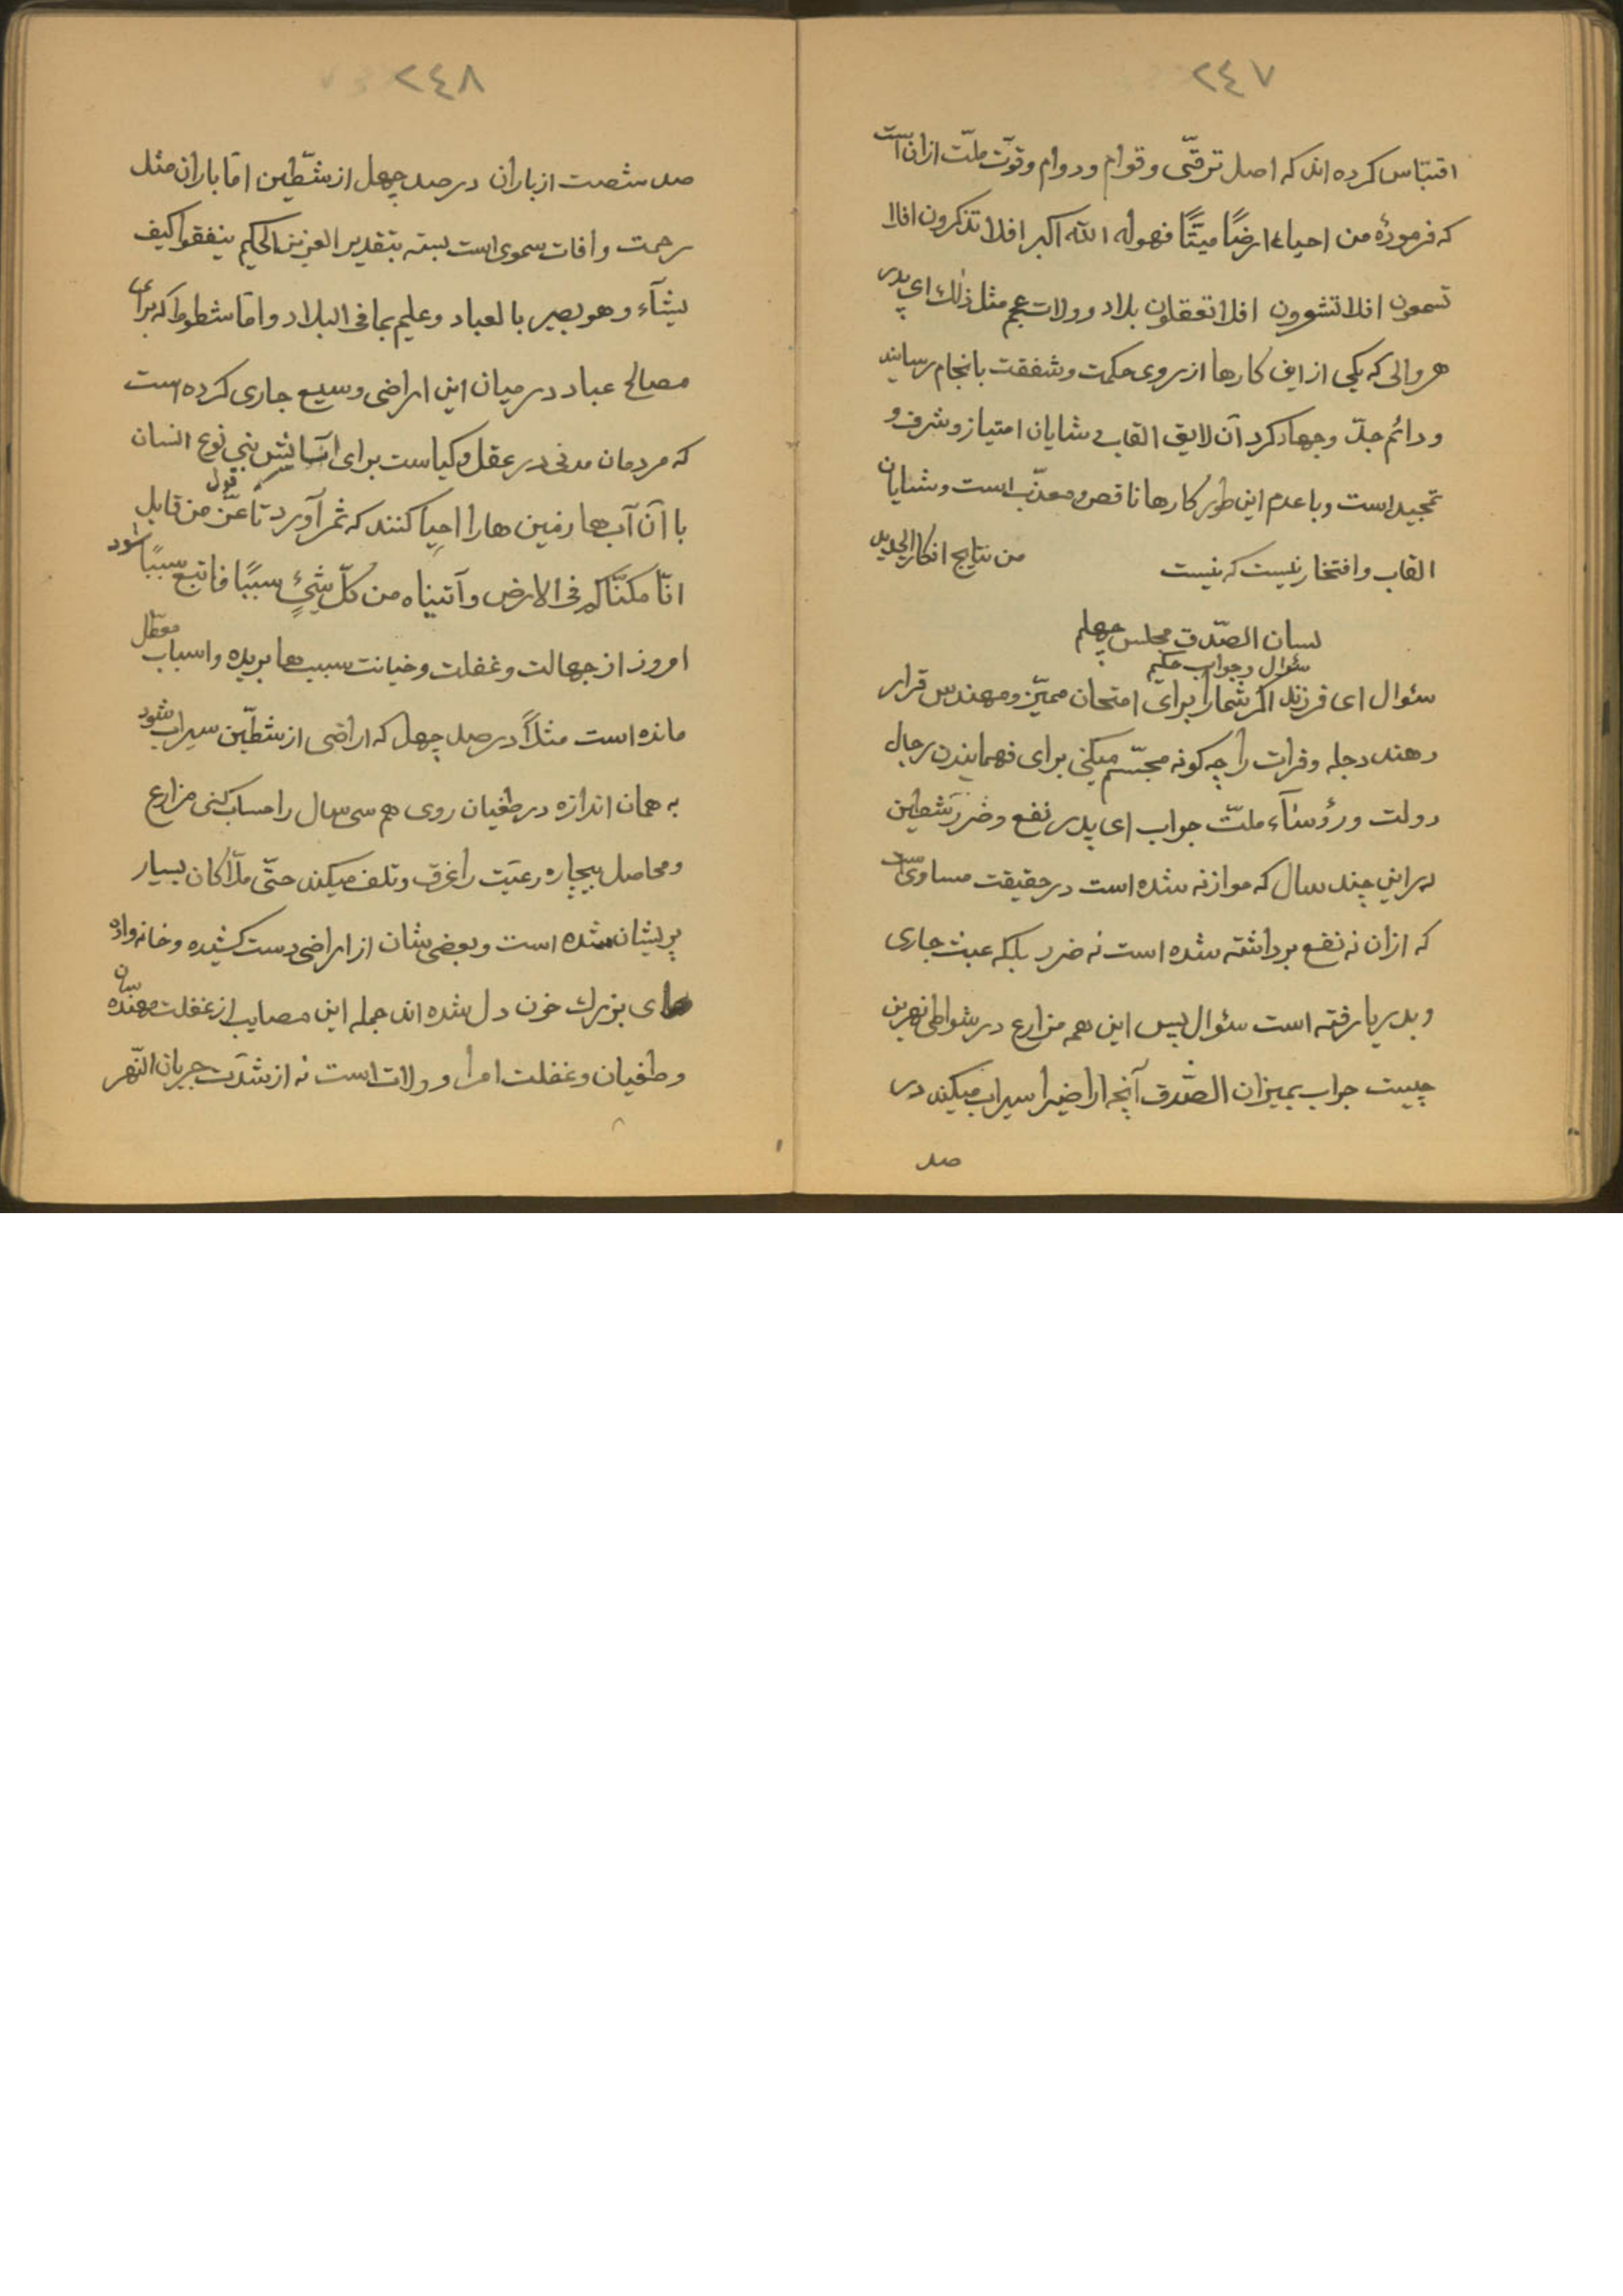 ٢٤٧
اقتباس کرده اند که اصل ترقّی و قوام و دوام و قوّت ملّت ازان است
که فرمودهٔ من احیاء ارضًا میتًا فهو له الله اکبر افلا تذکرون افلا
تسمعون افلا تشعرون افلا تعقلون بلاد و ولات عجم مثل ذلك ای پدر
هر والی که یکی از این کارها از روی حکمت و شفقت بانجام رسانید
و دائم جدّ و جهاد کرد آن لایق القاب و شایان امتیاز و شرف و
تمجید است و با عدم این طور کارها ناقص و معذّب است و شایان
القاب و افتخار نیست که نیست من نتایج افکار الجدید
لسان الصّدق مجلس چهلم
سئوال و جواب حکیم
سئوال ای فرزند اکر شمارا برای امتحان ممیّز و مهندس قرار
دهند دجله و فرات را چه کونه مجسّم میکنی برای فهمانیدن رجال
دولت و رؤسآء ملّت جواب ای پدر نفع و ضرر شطین
در این چند سال که موازنه شده است در حقیقت مساوی است
که ازان نه نفع برداشته شده است نه ضرر بلکه عبث جاری
و بدریا رفته است سئوال پس این همه مزارع در شواطی نهرین
چیست جواب بمیزان الصّدق آنچه اراضیرا سیراب میکند در
صد
٢٤٨
صد شصت از باران در صد چهل از شطّین امّا باران مثل
رحمت و آفات سموی است بسته بتقدیر العزیز الحکیم ینفقوا کیف
یشآء و هو بصیر بالعباد و علیم بما فی البلاد و امّا شطوط که برای
مصالح عباد در میان این اراضی وسیع جاری کرده است
که مردمان مدنی در عقل و کیاست برای آسایش بنی نوع انسان
با آن آب ها زمین هارا احیا کنند که ثمر آورد تا عزّ من قابل قول
انّا مکنّا له فی الارض و آتیناه من کلّ شیءٍ سببًا فاتبع سببًا شود
امروز از جهالت و غفلت و خیانت سببها بریده و اسباب معطّل
مانده است مثلاً در صد چهل که اراضی از شطّین سیراب شود
به همان اندازه در طغیان روی هم سی سال را حساب کنی مزارع
و محاصل بیچاره رعیّت را غرق و تلف میکند حتّی ملّاکان بسیار
پریشان شده است و بعضی شان از اراضی دست کشیده و خانه واده
های بزرك خون دل شده اند جمله این مصایب از غفلت مهندسان
و طغیان و غفلت امرا و ولات است نه از شدّت جریان النّهر